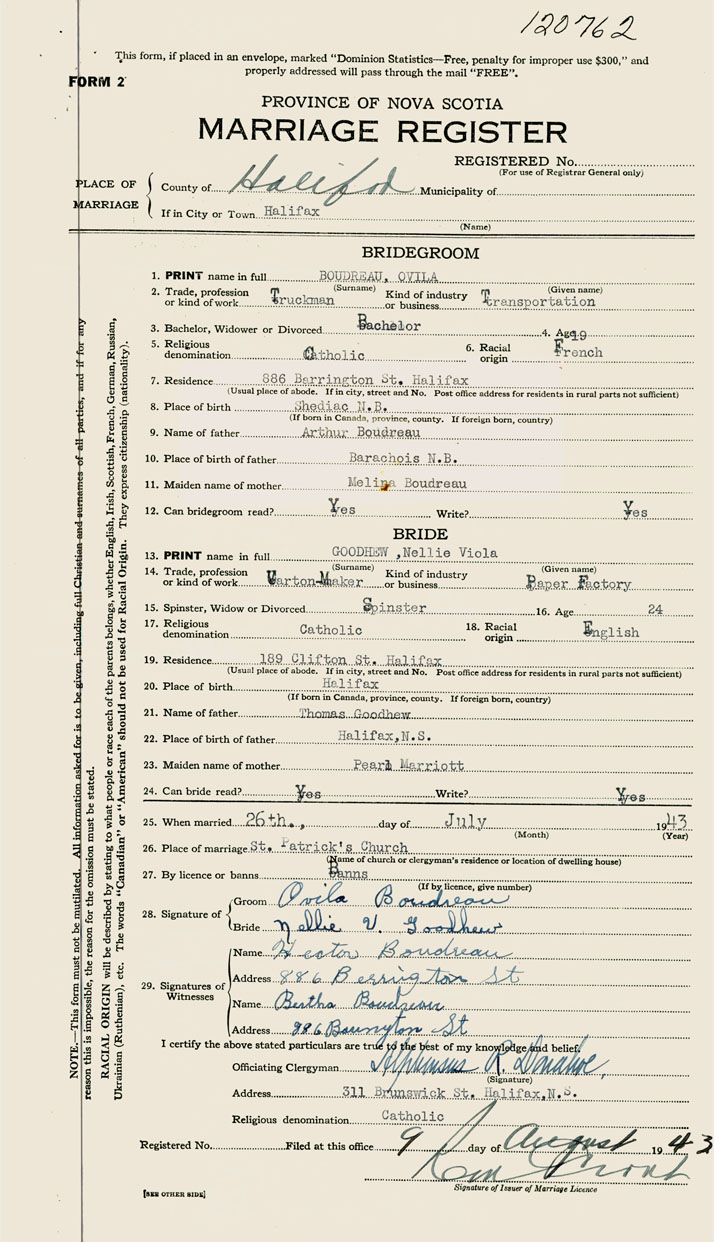 120762
This form, if placed in an envelope, marked "Dominion Statistics—Free, penalty for improper use $300," and
properly addressed will pass through the mail "FREE".
FORM 2
PROVINCE OF NOVA SCOTIA
MARRIAGE REGISTER
REGISTERED No.
(For use of Registrar General only)
PLACE OF MARRIAGE
County of Halifax Municipality of
If in City or Town Halifax
(Name)
BRIDEGROOM
1. PRINT name in full BOUDREAU, OVILA
(Surname) (Given name)
2. Trade, profession or kind of work Truckman Kind of industry or business Transportation
3. Bachelor, Widower or Divorced Bachelor 4. Age 19
5. Religious denomination Catholic 6. Racial origin French
7. Residence 886 Barrington St. Halifax
(Usual place of abode. If in city, street and No. Post office address for residents in rural parts not sufficient)
8. Place of birth Shediac N.B.
(If born in Canada, province, county. If foreign born, country)
9. Name of father Arthur Boudreau
10. Place of birth of father Barachois N.B.
11. Maiden name of mother Melina Boudreau
12. Can bridegroom read? Yes Write? Yes
BRIDE
13. PRINT name in full GOODHEW ,Nellie Viola
(Surname) (Given name)
14. Trade, profession or kind of work Carton-Maker Kind of industry or business Paper Factory
15. Spinster, Widow or Divorced Spinster 16. Age 24
17. Religious denomination Catholic 18. Racial origin English
19. Residence 189 Clifton St. Halifax
(Usual place of abode. If in city, street and No. Post office address for residents in rural parts not sufficient)
20. Place of birth Halifax
(If born in Canada, province, county. If foreign born, country)
21. Name of father Thomas Goodhew
22. Place of birth of father Halifax,N.S.
23. Maiden name of mother Pearl Marriott
24. Can bride read? Yes Write? Yes
25. When married 26th., day of July 1943
(Month) (Year)
26. Place of marriage St. Patrick's Church
(Name of church or clergyman's residence or location of dwelling house)
27. By licence or banns Banns
(If by licence, give number)
28. Signature of
Groom Ovila Boudreau
Bride Nellie V. Goodhew
29. Signatures of Witnesses
Name Hector Boudreau
Address 886 Berrington St
Name Bertha Boudreau
Address 886 St
I certify the above stated particulars are true to the best of my knowledge and belief.
Officiating Clergyman Alphonsus R. Donahoe,
(Signature)
Address 311 Brunswick St. Halifax,N.S.
Religious denomination Catholic
Registered No. Filed at this office 9 day of August 1943
Signature of Issuer of Marriage Licence
[SEE OTHER SIDE]
NOTE.—This form must not be mutilated. All information asked for is to be given, including full Christian and surnames of all parties, and if for any
reason this is impossible, the reason for the omission must be stated.
RACIAL ORIGIN will be described by stating to what people or race each of the parents belongs, whether English, Irish, Scottish, French, German, Russian,
Ukrainian (Ruthenian), etc. The words "Canadian" or "American" should not be used for Racial Origin. They express citizenship (nationality).